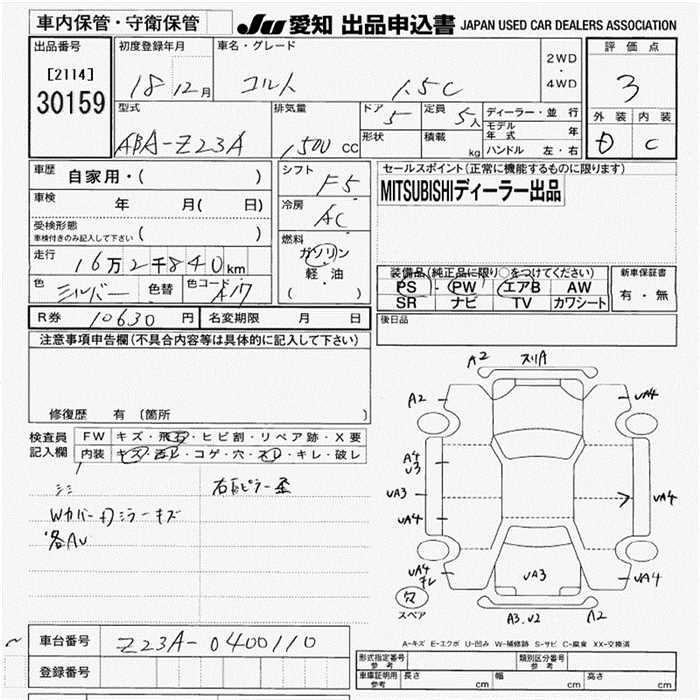 車内保管・守衛保管
JU 愛知 出品申込書 JAPAN USED CAR DEALERS ASSOCIATION
出品番号
[2114]
30159
初度登録年月
18 12月
車名・グレード
コルト 1.5C
2WD
・
4WD
評価点
3
外装 内装
D C
型式
ABA-Z23A
排気量
1500 cc
ドア
5
形状
定員
5人
積載
kg
ディーラー・並行
モデル年式 年
ハンドル 左・右
車歴 自家用・( )
車検 年 月( 日)
受検形態
車検付きのみ記入して下さい ( )
走行 16万2千840km
色 シルバー 色替 色コード A17
シフト F5
冷房 AC
燃料
ガソリン
軽・油
( ・ )
セールスポイント(正常に機能するものに限ります)
MITSUBISHIディーラー出品
装備品(純正品に限り○をつけてください)
PS・PW エアB AW
SR ナビ TV カワシート
新車保証書
有・無
R券 10630円 名変期限 月 日
後日品
注意事項申告欄(不具合内容等は具体的に記入して下さい)
修復歴 有 (箇所 )
検査員記入欄
FW キズ・飛石・ヒビ割・リペア跡・X要
内装 キズ・汚レ・コゲ・穴・スレ・キレ・破レ
右 ピラー歪
Wカバー ミラーキズ
各AU
A2 スリA
A2 UA4
A4
U3
UA3 UA4
UA4
UA4
キレ
UA3 UA4
穴
スペア
A3.U2 A2
A-キズ E-エクボ U-凹み W-補修跡 S-サビ C-腐食 XX-交換済
車台番号 Z23A-0400110
登録番号
形式指定番号
参考
類別区分番号
参考
車庫証明用
参考
長さ cm 幅 cm 高さ cm